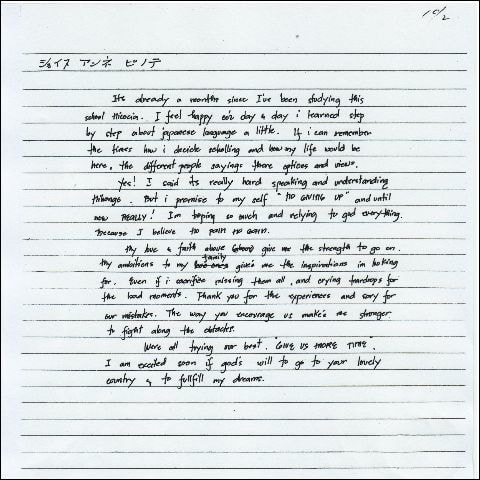 10/2
ジョイス アンネ ビノテ
Its already a months since I've been studying this
school Hitocin. I feel happy coz day & day i learned step
by step about japanese language a little. If i can remember
the times how i decide scholling and how my life would be
here, the different people sayings there options and views.
Yes! I said its really hard speaking and understanding
Nihongo. But i promise to my self "NO GIVING UP" and until
now REALLY! Im hoping so much and relying to god everything.
Because I believe no pain no gain.
My love & faith above give me the strength to go on.
My ambitions to my family give's me the inspirations in looking
for. Even if i sacrifice missing them all, and crying teardrops for
the load moments. Thank you for the experiences and sory for
our mistakes. The way you encourage us make's me stronger
to fight along the obtacles.
Were all trying our best. "GIVE US MORE TIME".
I am excited soon if god's will to go to your lovely
country & to fullfill my dreams.